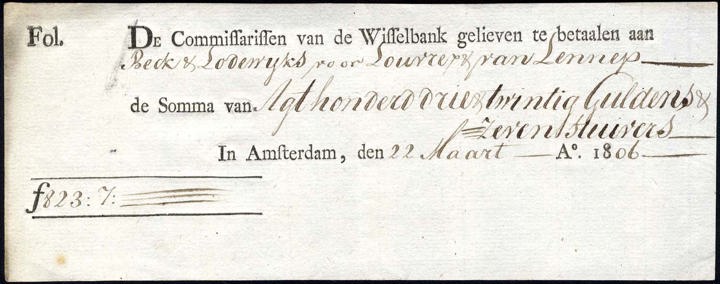 Fol. De Commissarissen van de Wisselbank gelieven te betaalen aan
Beck & Lodewyks voor Louvrer & van Lennep
de Somma van Agt honderd drie & twintig Guldens &
Zeven Stuivers
In Amsterdam, den 22 Maart A°. 1806
ƒ823:7: